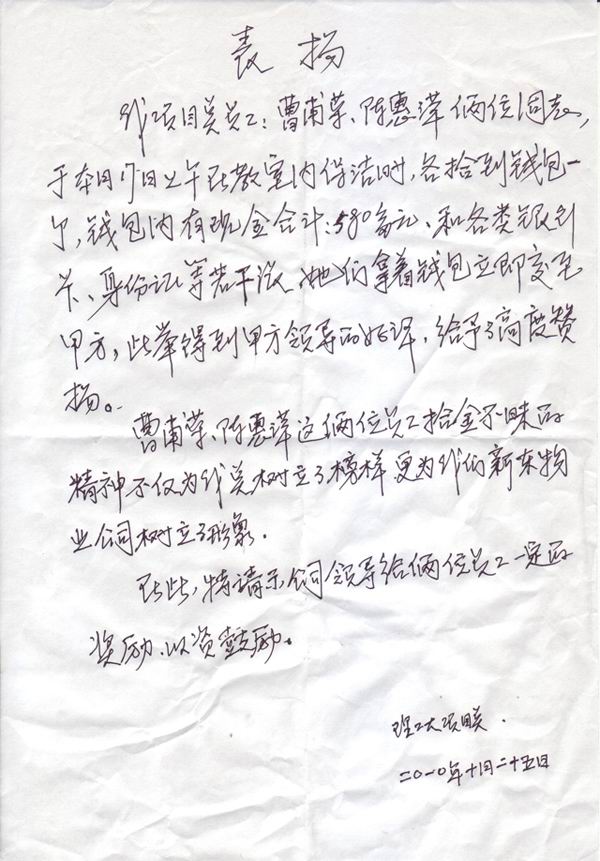 表扬
我项目类员工：曹甫荣、陈惠萍俩位同志，
于本月17日上午在教室内保洁时，各拾到钱包一
个，钱包内有现金合计：580多元、和各类银行
卡、身份证等若干张，她们拿着钱包立即交至
甲方，此举得到甲方领导的好评，给予了高度赞
扬。
曹甫荣、陈惠萍这俩位员工拾金不昧的
精神不仅为我类树立了榜样更为我们新东物
业公司树立了形象．
在此，特请示公司领导给俩位员工一定的
奖励、以资鼓励。
理工大项目类．
二〇一〇年十月二十五日